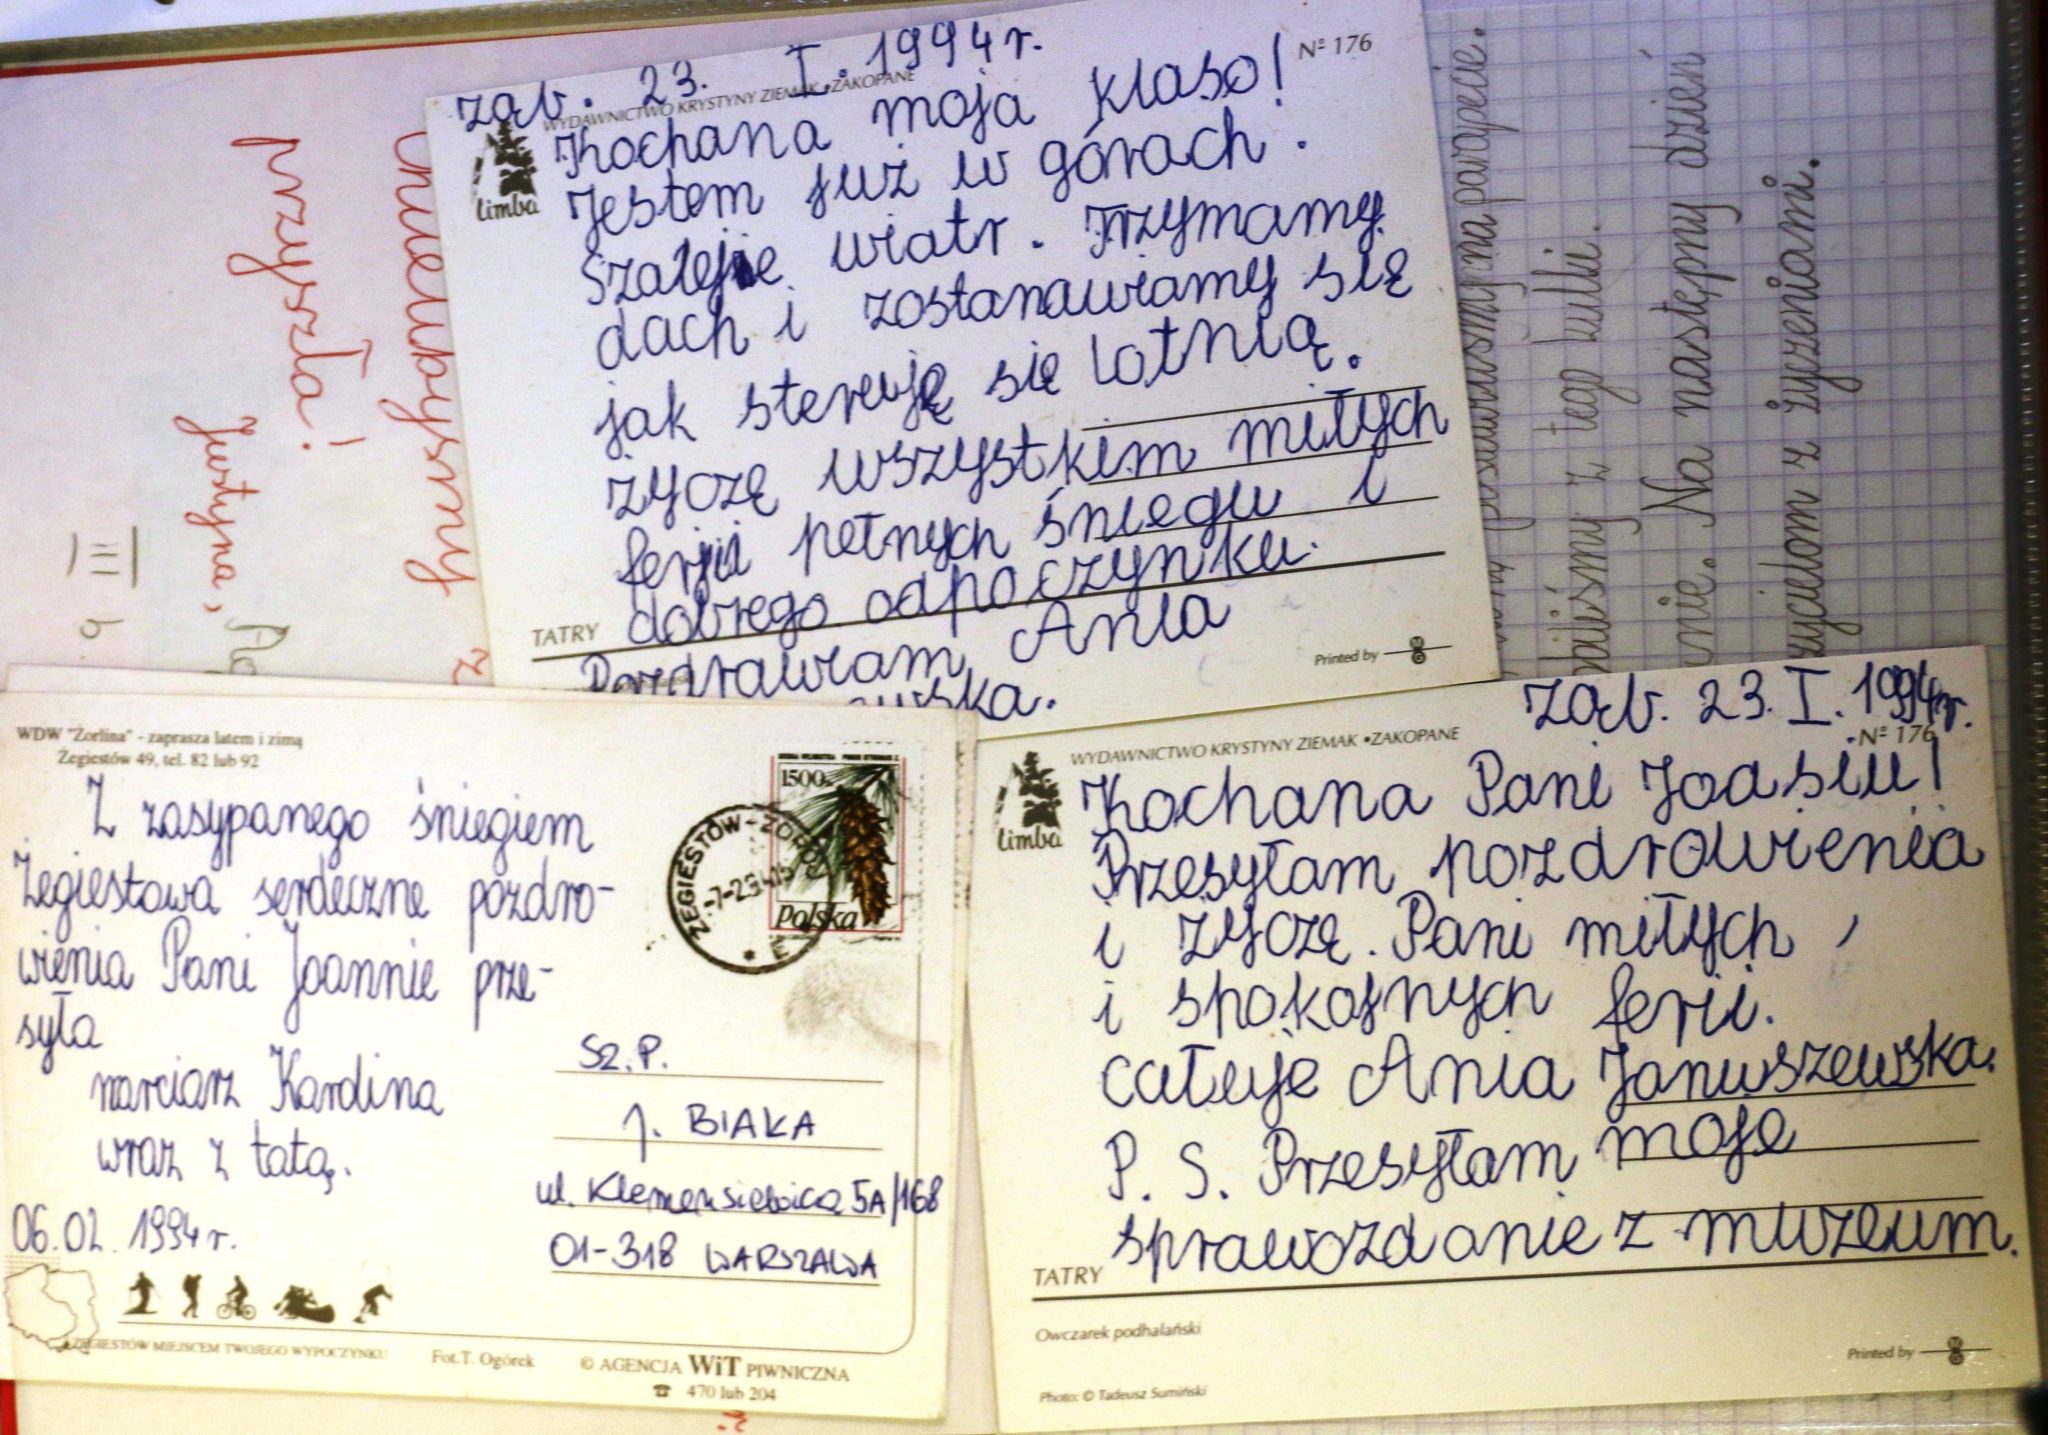 ząb. 23. I. 1994 r.
WYDAWNICTWO KRYSTYNY ZIEMAK •ZAKOPANE
Nº 176
limba
Kochana moja klaso!
Jestem już w górach.
Szaleje wiatr. Trzymamy
dach i zostanawiamy się
jak steruję się lotnią.
życzę wszystkim miłych
ferii pełnych śniegu i
dobrego odpoczynku.
TATRY
Pozdrawiam Ania
Printed by
WDW "Żorlina" - zaprasza latem i zimą
Żegiestów 49, tel. 82 lub 92
Z zasypanego śniegiem
Żegiestowa serdeczne pozdro-
wienia Pani Joannie prze-
syła
narciarz Kardina
wraz z tatą.
06.02.1994 r.
1500
Polska
ŻEGIESTÓW-ZDRÓJ
Sz. P.
J. BIAŁKA
5A/168
01-318 WARSZAWA
ŻEGIESTÓW MIEJSCEM TWOJEGO WYPOCZYNKU
Fot.T. Ogórek
© AGENCJA WiT PIWNICZNA
☎ 470 lub 204
ząb. 23. I. 1994r.
WYDAWNICTWO KRYSTYNY ZIEMAK •ZAKOPANE
Nº 176
limba
Kochana Pani Joasiu!
Przesyłam pozdrowienia
i życzę. Pani miłych,
i spokojnych ferii.
całuje Ania Januszewska.
P. S. Przesyłam moje
sprawozdanie z muzeum.
TATRY
Owczarek podhalański
Photo: © Tadeusz Sumiński
Printed by
przyszła!
Justyna,
na parapecie.
z tego kulki.
Na następny dzień
z życzeniami.